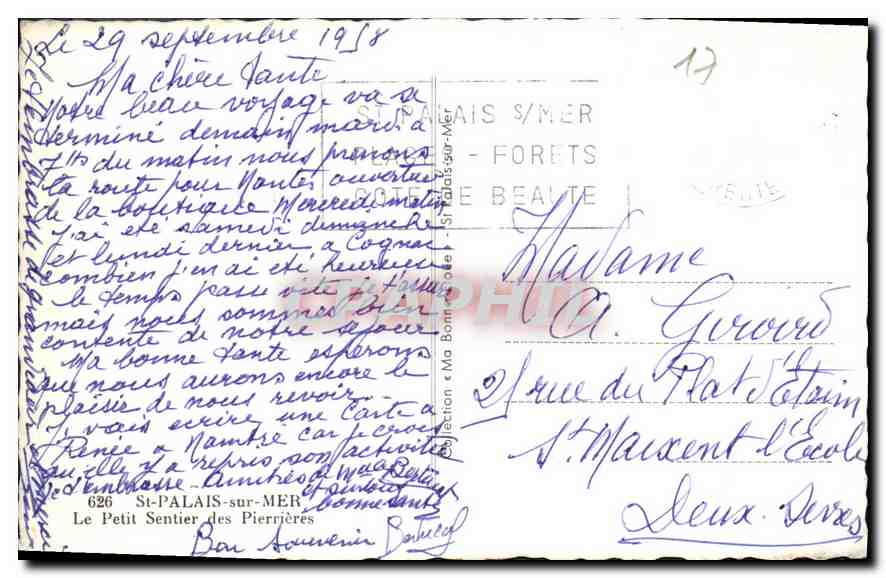 Le 29 septembre 1958
Ma chère Tante
Notre beau voyage va se
terminé demain mardi à
7hs du matin nous prenons
la route pour Nantes ouverture
de la boutique Mercredi matin
J'ai été samedi dimanche
et lundi dernier a Cognac
combien j'en ai été heureuse
le temps passe vite je t'assure
mais nous sommes
contente de notre séjour
Ma bonne tante espérons
que nous aurons encore le
plaisir de nous revoir
J'y vais écrire une carte a
Renée a car je crois
qu'elle y a repris son activité
Je t'embrasse - Amitiés de
et surtout
bonne santé
Bon Souvenir
626 St-PALAIS-sur-MER
Le Petit Sentier des Pierrières
Collection « Ma Bonne » - St-Palais-sur-Mer
ST PALAIS S/MER
PLAGES - FORETS
COTE DE BEAUTE
17
CPAPHIL
Madame
A. Giroiré
21 rue du Plat d'Étain
St Maixent l'École
Deux-Sèvres